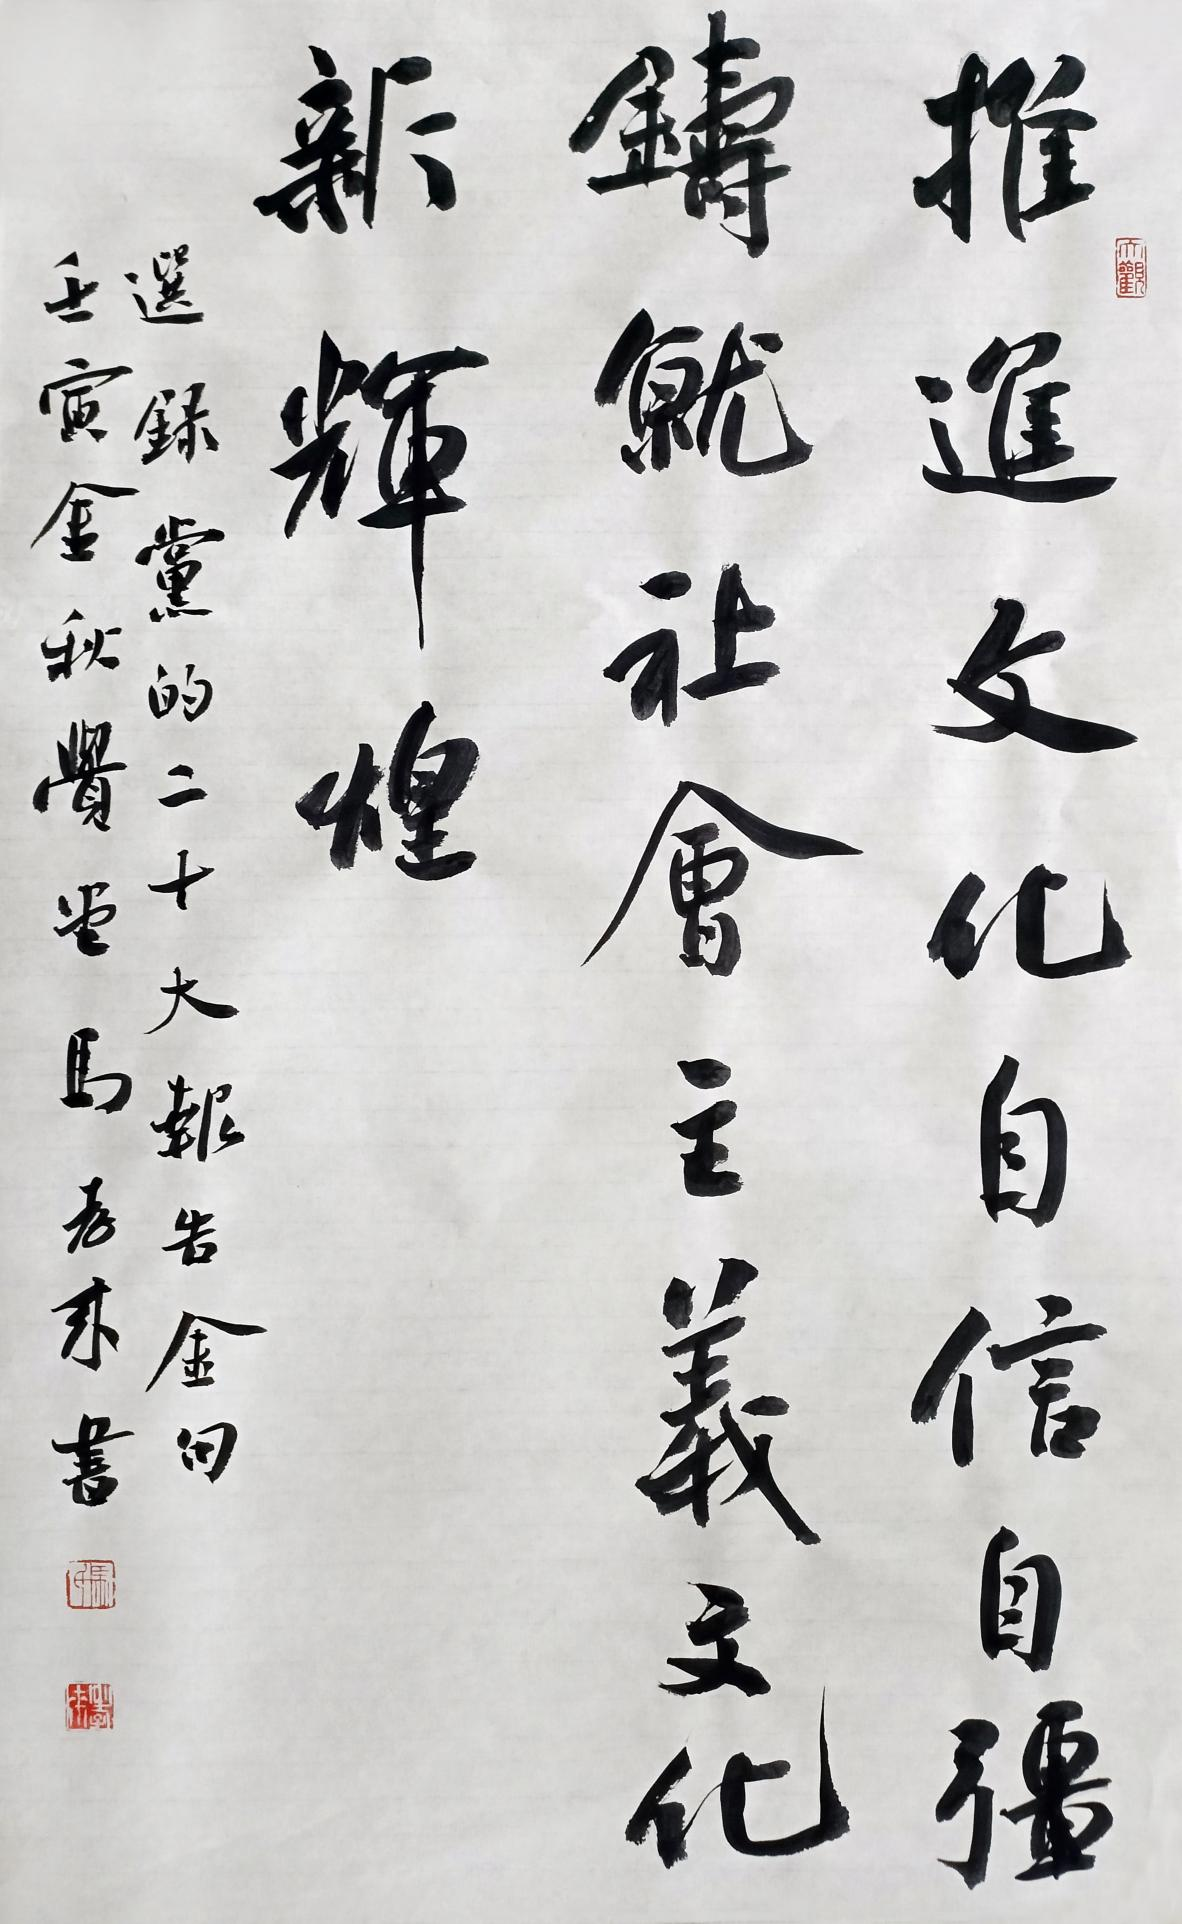 推進文化自信自彊
鑄就社會主義文化
新輝煌
選録黨的二十大報告金句
壬寅金秋覺堂馬孝來書
大觀